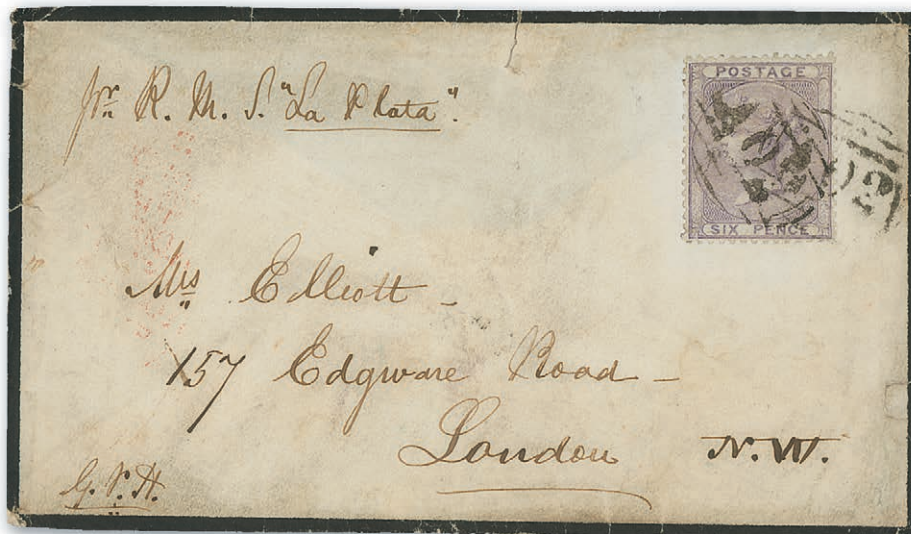 pr R. M. S. "La Plata".
POSTAGE
SIX PENCE
Mrs Elliott -
157 Edgware Road -
London N.W.